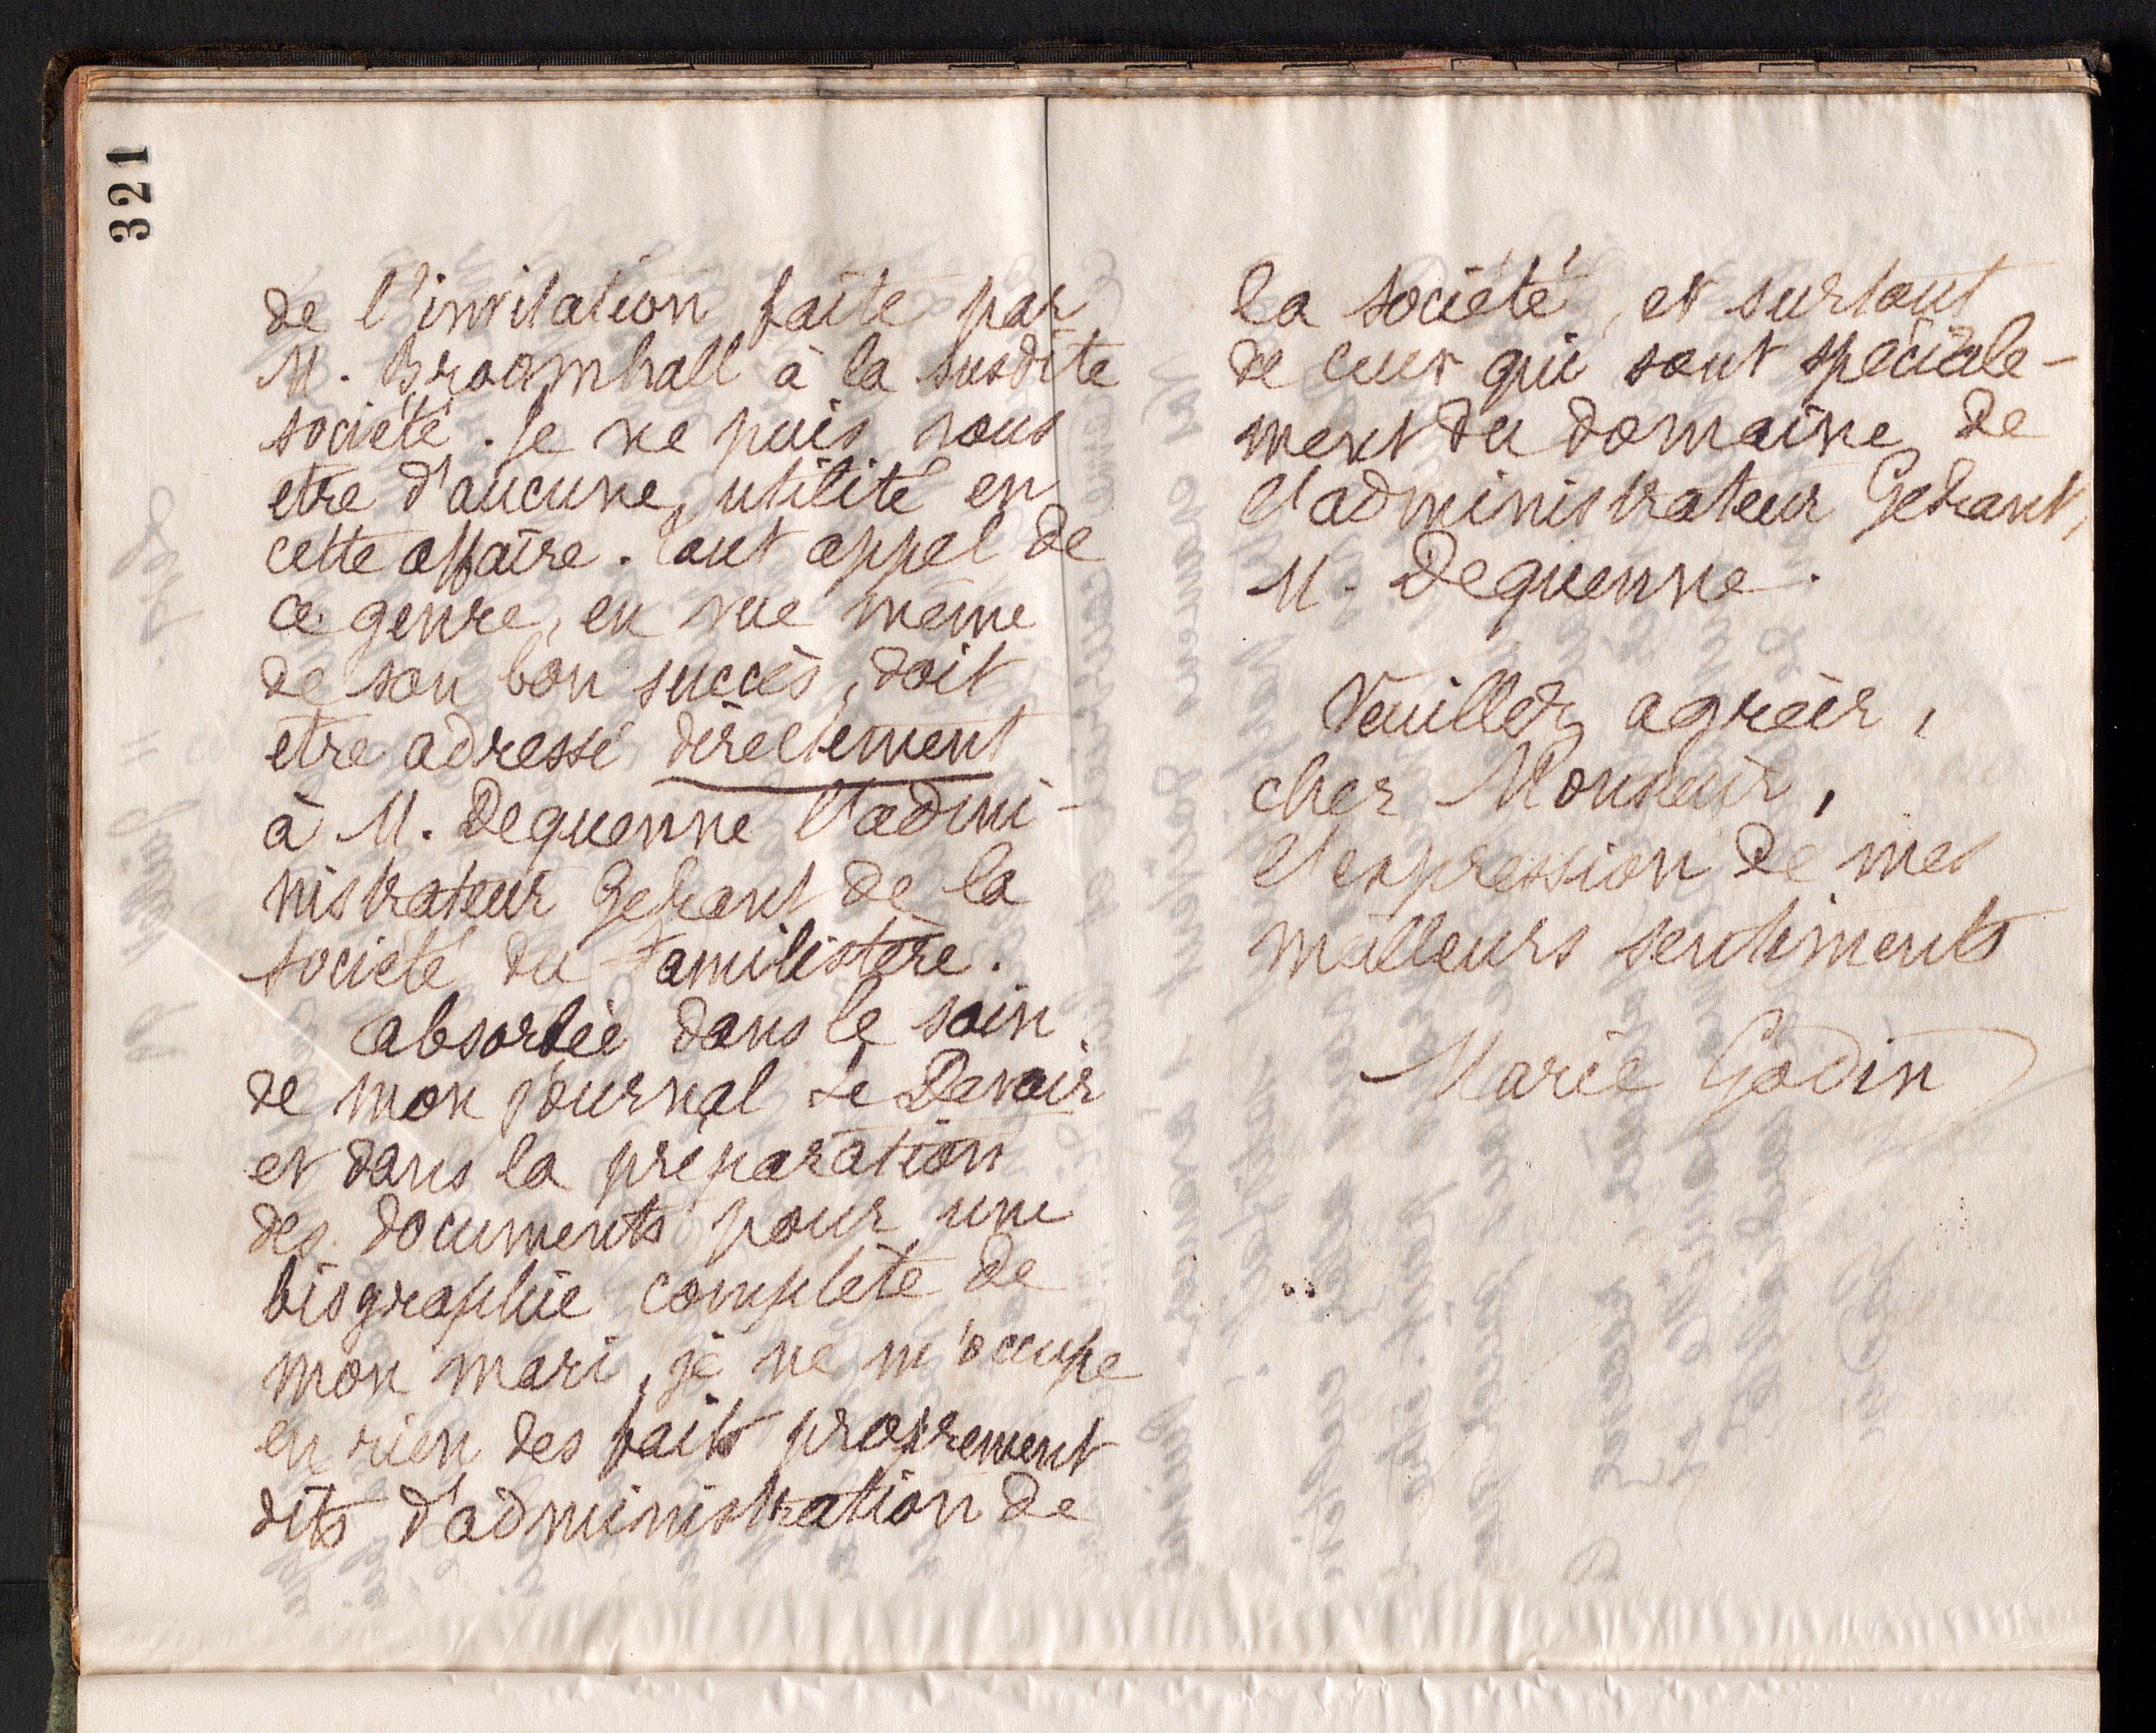 321
de l'invitation faite par
M. Broomhall à la susdite
société. Je ne puis vous
etre d'aucune utilité en
cette affaire. Tout appel de
ce genre, en vue même
de son bon succès, doit
etre adressé directement
à M. Dequenne l'admi-
nistrateur Gérant de la
société du Familistère.
Absorbée dans le soin
de mon journal Le Devoir
et dans la préparation
des documents pour une
biographie complète de
mon mari, je ne m'occupe
en rien des faits proprement
dits d'administration de
la société, et surtout
de ceux qui sont spéciale-
ment du domaine de
l'administrateur Gérant,
M. Dequenne.
Veuillez agréer,
cher Monsieur,
l'expression de mes
meilleurs sentiments
Marie Godin